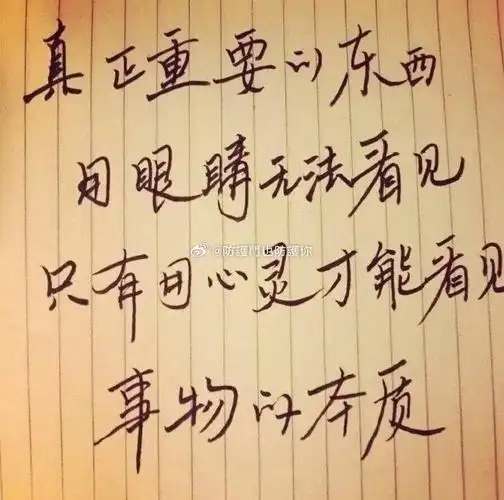 真正重要的东西
用眼睛无法看见
@防護鬥也防護你
只有用心灵才能看见
事物的本质